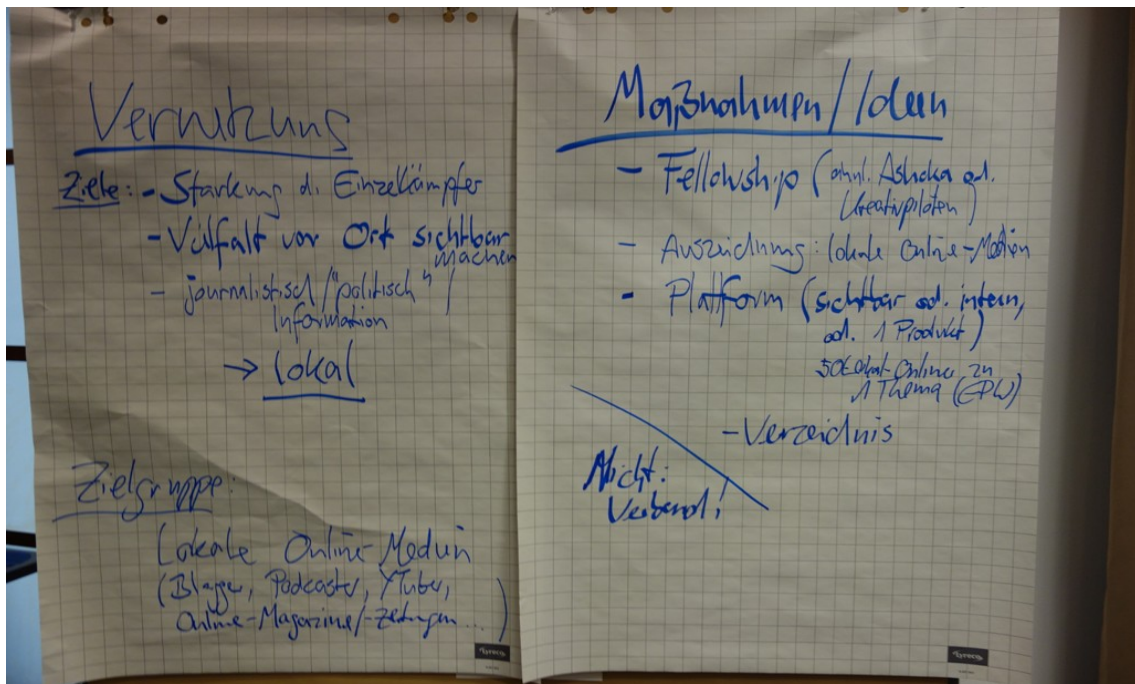 Vernetzung
Ziele: - Stärkung d. Einzelkämpfer
- Vielfalt vor Ort sichtbar
machen
- journalistisch/"politisch"/
Information
→ lokal
Zielgruppe:
Lokale Online-Medien
(Blogger, Podcaster, YTuber,
Online-Magazine/-zeitungen...)
Maßnahmen/Ideen
- Fellowship (ähnl. Ashoka od.
Kreativpiloten)
- Auszeichnung: lokale Online-Medien
- Plattform (sichtbar od. intern,
od. 1 Produkt)
Online zu
1 Thema
- Verzeichnis
Nicht:
Verband!